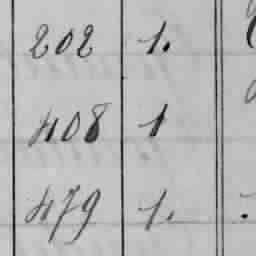 202 1.
408 1
479 1.